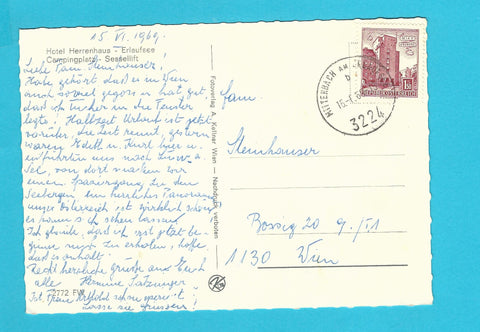 15. VI. 1969.
Hotel Herrenhaus - Erlaufsee
Campingplatz - Sessellift
Liebe Fam. Steinhauser!
Habe gehört daß es in Wien
auch soviel gegossen hat,
daß ich Tücher in die Fenster
legte! Halbzeit Urlaub ist jetzt
vorüber, die Zeit rennt, gestern
waren Edith u. Kurl hier u.
entführten uns nach
See, von dort machten wir
einen Spaziergang zu den
Seebergen ein herrliches Panorama
unser Österreich ist wirklich schön
es sich sehen lassen
Ich glaube, daß ich erst jetzt be-
ginne mich zu erholen, hoffe
daß es anhält.
Recht herzliche Grüße an Euch
alle Hermine
Ist schon operiert?
Lasse sie grüssen!
2772 FW
Fotoverlag A. Kellner Wien - Nachdruck verboten
Fam.
Steinhauser
Bossig 20 9/II
1130 Wien
MITTERBACH AM
3224
REPUBLIK ÖSTERREICH